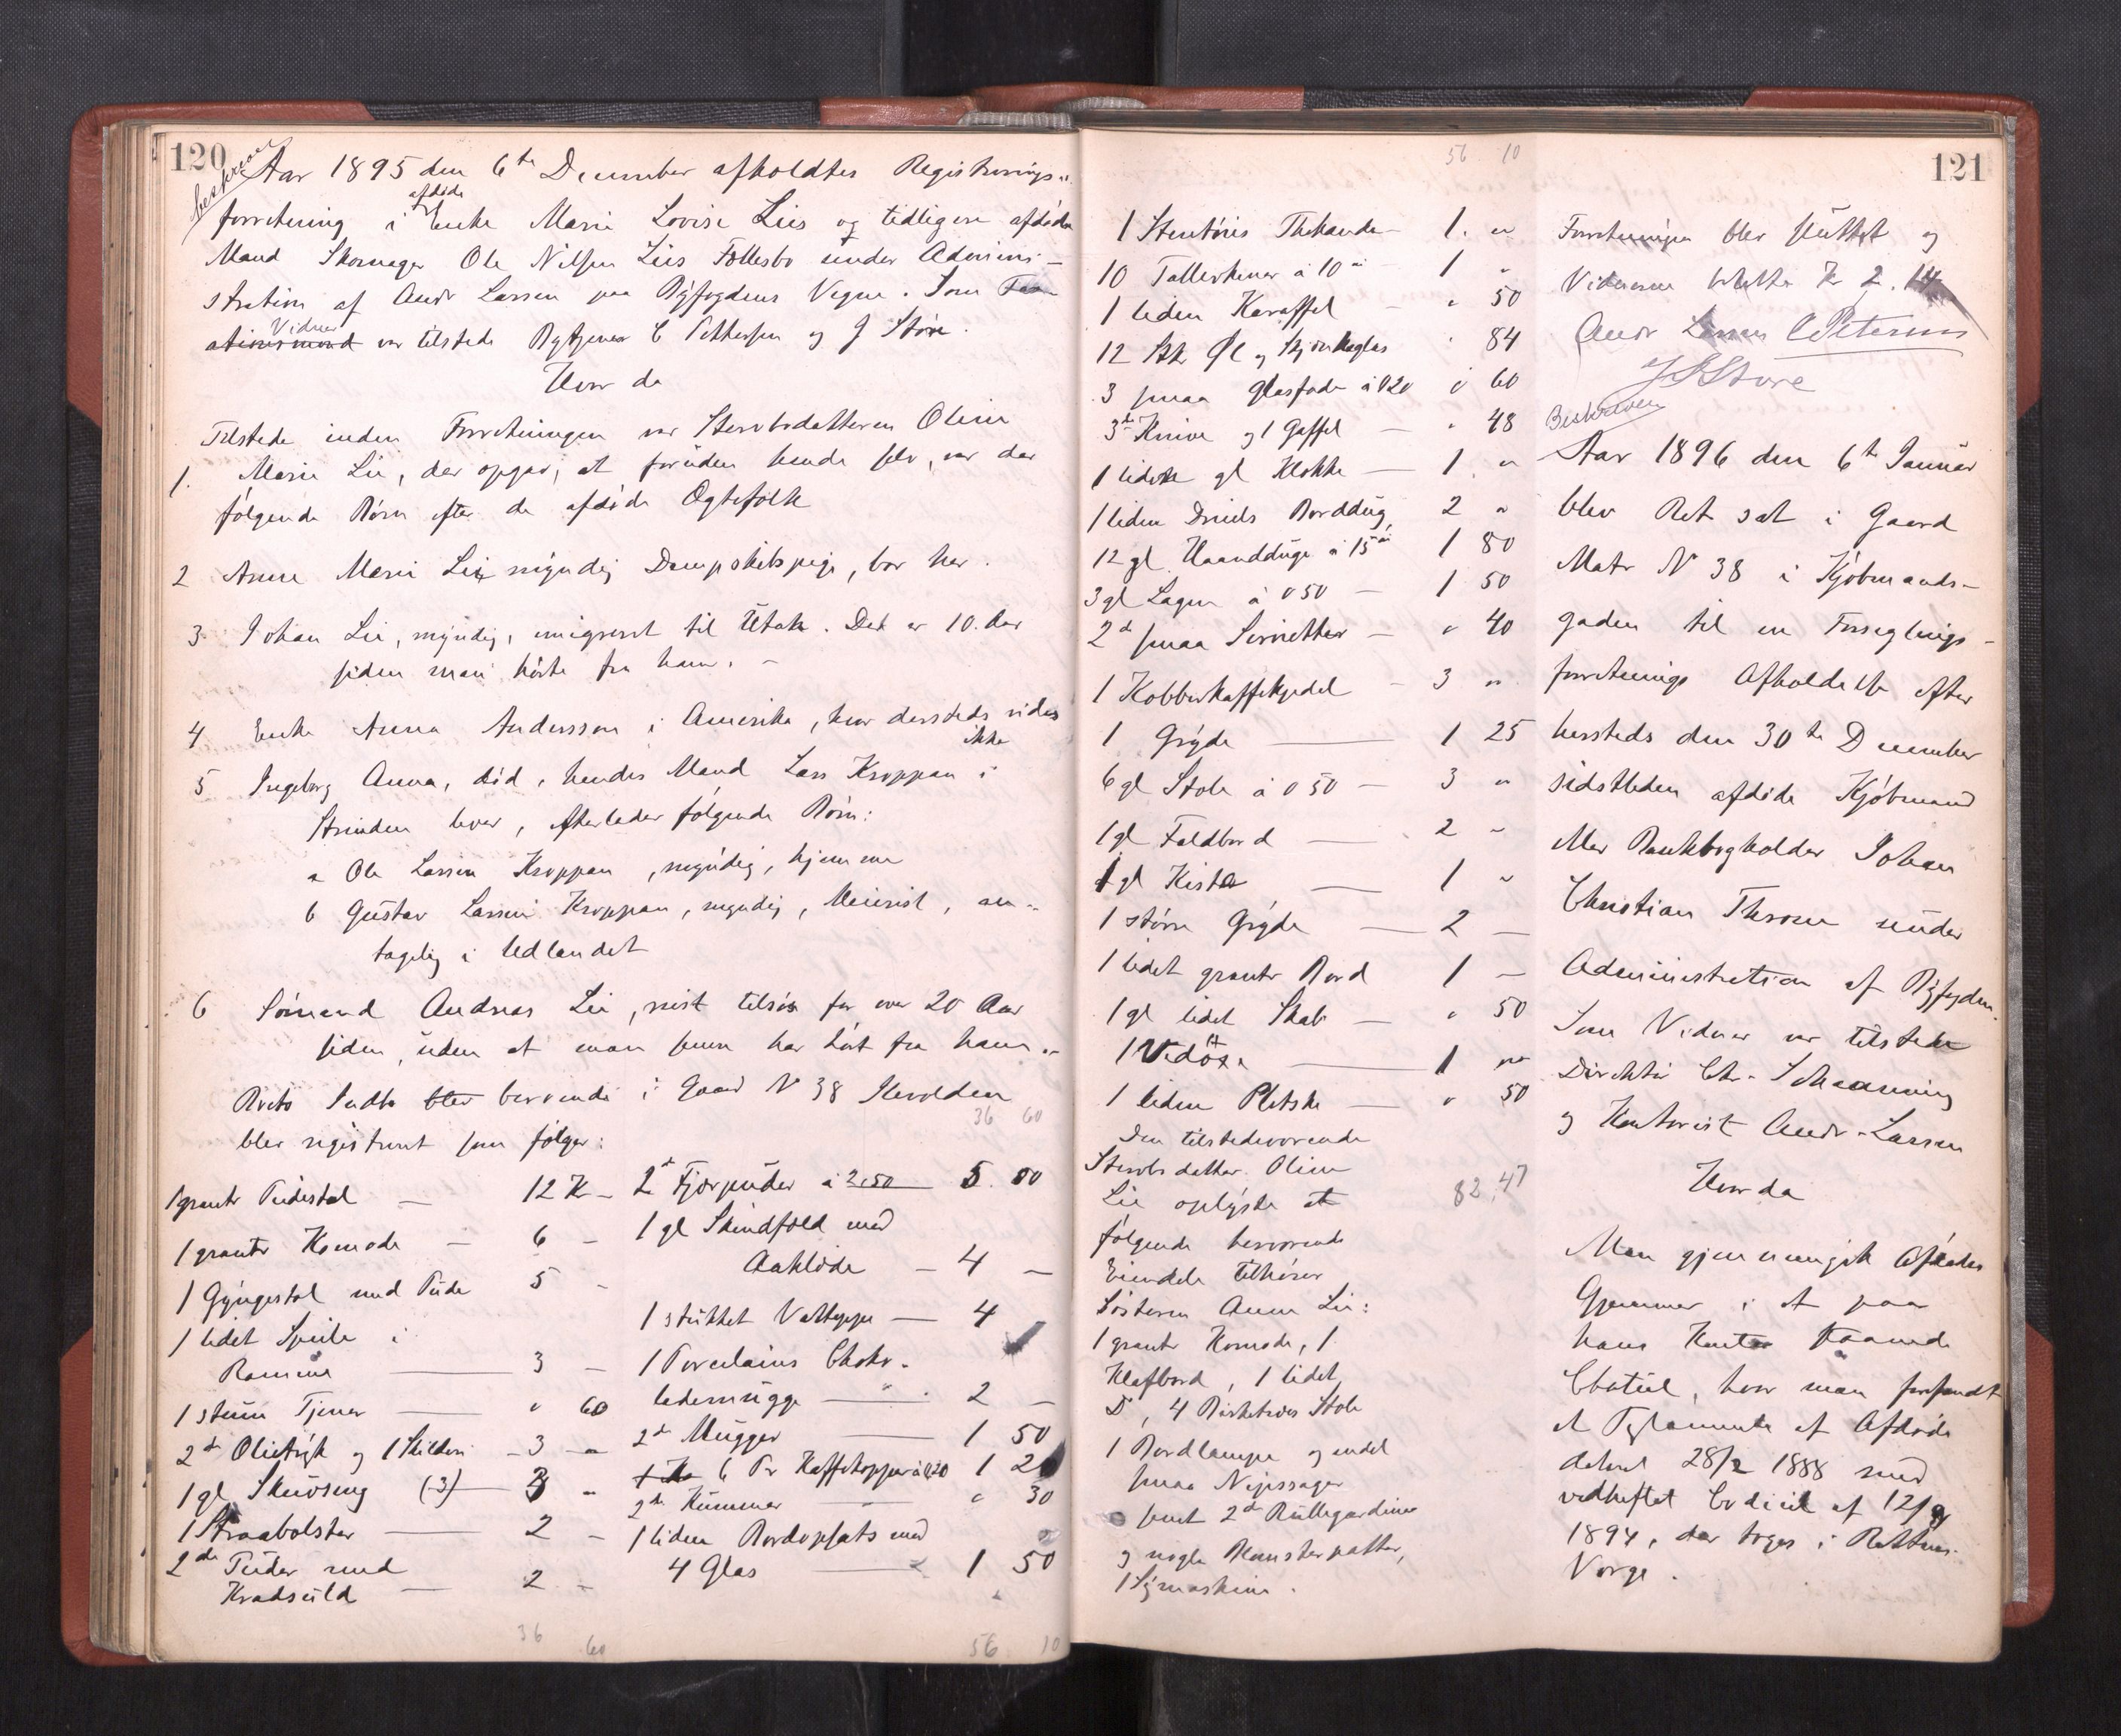 120
beskreven
Aar 1895 den 6te December afholdtes Registrerings-
forretning i afdøde Enke Marie Lovise Lies og tidligere afdøde
Mand Skomager Ole Nilsen Lies Fællesbo under Admini-
stration af Andr Larsen paa Byfogdens Vegne. Som
Vidner var tilstede C Pettersen og J Støre.
Hvor da
Tilstede under Forretningen var Stervbodatteren Oline
1. Marie Lie, der opgav, at foruden hende selv, var der
følgende Børn efter de afdøde Ægtefolk
2 Anne Marie Lie myndig Dampskibspige, bor her.
3 Johan Lie, myndig, emigreret til Utah. Det er 10. Aar
siden man hørte fra ham. -
4 Enke Anna Anderssen i Amerika, hvor dersteds vides
ikke
5 Ingeborg Anna, død, hendes Mand Lars Kroppan i
Strinden lever, efterlader følgende Børn:
a Ole Larsen Kroppan, myndig, hjemme
b Gustav Larsen Kroppan, myndig, Meierist, an-
tagelig i Udlandet
6 Sømand Andreas Lie, reist tilsøs for over 20 Aar
siden, uden at man senere har hørt fra ham.
Boets Indbo blev beroende i Gaard N 38 Ilevolden
36 60
blev registreret som følger:
1 grantr Pidestal — 12 Kr -
1 grantr Komode — 6 -
1 Gyngestol med Pude 5 -
1 lidet Speile i
Ramme — 3 -
1 stum Tjener — " 60
2 do Olietryk og 1 Skilderi - 3 -
1 gl Skuvseng (3)
1 Straabolster — 2 -
2 do Puder med
Kradsuld — 2 -
36 60
2 do Fjærpuder à 2.50 — 5. 00
1 gl Skindfeld med
Aaklæde — 4 —
1 stukket Vatteppe — 4
1 Porcelains Choko-
lademugge — 2 —
2 do Mugger — 1 50
6 Pr Kaffekopper à 0.20 1 20
2 do Kummer " 30
1 liden Bordopsats med
4 Glas — 1 50
56 10
56 10
121
1 Stentøis Thekande 1. "
10 Tallerkener à 10 ø 1 "
1 liden Karaffel — " 50
12 Stk Øl og Skjænkeglas " 84
3 smaa Glasfade à 020 " 60
3 do Knive og 1 Gaffel — " 48
1 liden gl Klokke — 1 "
1 liden Dreiels Borddug, 2 "
12 gl Haandduge à 15 ø 1 80
3 gl Lagen à 0 50 — 1 50
2 do smaa Servietter — " 40
1 Kobberkaffekjedel — 3 "
1 Gryde — 1 25
6 gl Stole à 0 50 — 3 "
1 gl Foldbord — 2 "
1 gl Kiste — 1 "
1 større Gryde — 2 —
1 lidet grantr Bord 1 —
1 gl lidet Skab — " 50
1 Vedøxe — 1 "
1 liden Pletske — " 50
Den tilstedeværende
Stervbodatter Oline
Lie oplyste at 82,47
følgende beroerende
Eiendele tilhører
Søsteren Anne Lie:
1 grantr Komode, 1
Klafbord, 1 lidet
Do, 4 Birketræs Stole
1 Bordlampe og endel
smaa Nipssager
samt 2 do Rullegardiner
og nogle Blomsterpotter,
1 Symaskine.
Forretningen blev sluttet og
Vidnerne betalte Kr 2.14
Andr Larsen CPetersen
JSStøre
Beskreven
Aar 1896 den 6te Januar
blev Ret sat i Gaard
Matr N 38 i Kjøbmands-
gaden til en Forseglings-
forretnings Afholdelse efter
hersteds den 30te December
sidstleden afdøde Kjøbmand
Christian Throne under
Administration af Byfogden.
Som Vidner var tilstede
Direktør Chr. Schaanning
og Kontorist Andr. Larsen
Hvor da
Man gjennemgik Afdødes
Gjemmer i et paa
hans Kontor staaende
Chatul, hvor man forefandt
et Testamente af Afdøde
dateret 28/2 1888 med
vedheftet Codicil af 12/9
1894, der toges i Rettens
Værge.